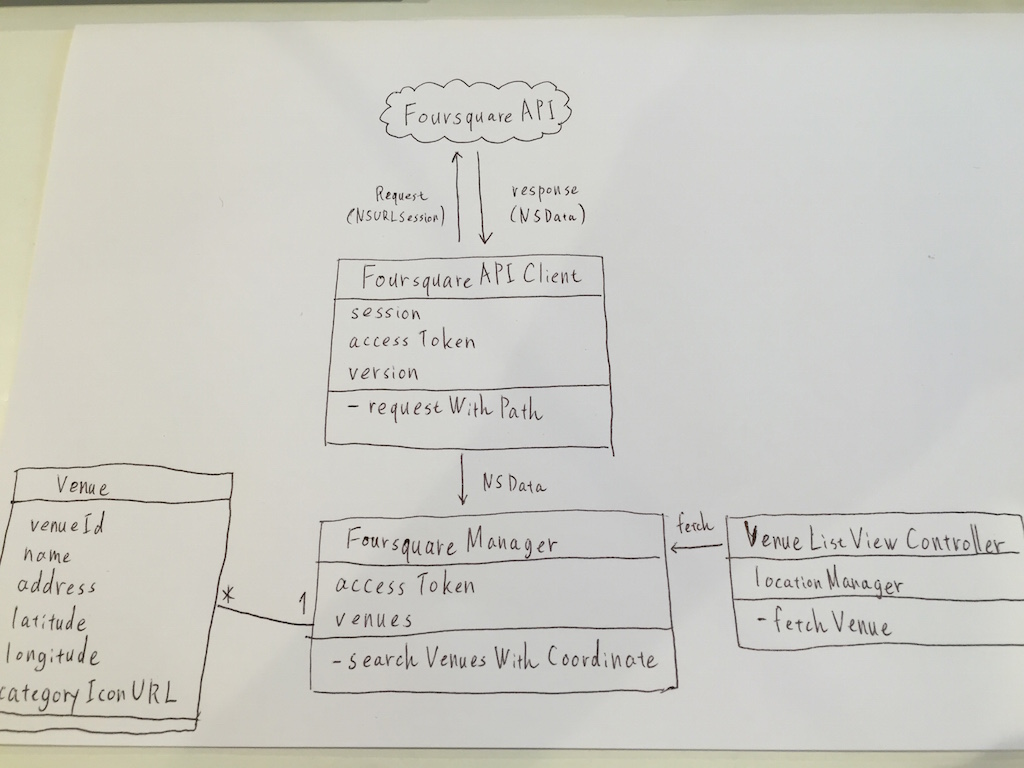 Foursquare API
Request
(NSURLSession)
response
(NSData)
Foursquare API Client
session
access Token
version
- request With Path
NSData
Venue
venueId
name
address
latitude
longitude
category Icon URL
*
1
Foursquare Manager
access Token
venues
- search Venues With Coordinate
fetch
Venue List View Controller
location Manager
- fetch Venue